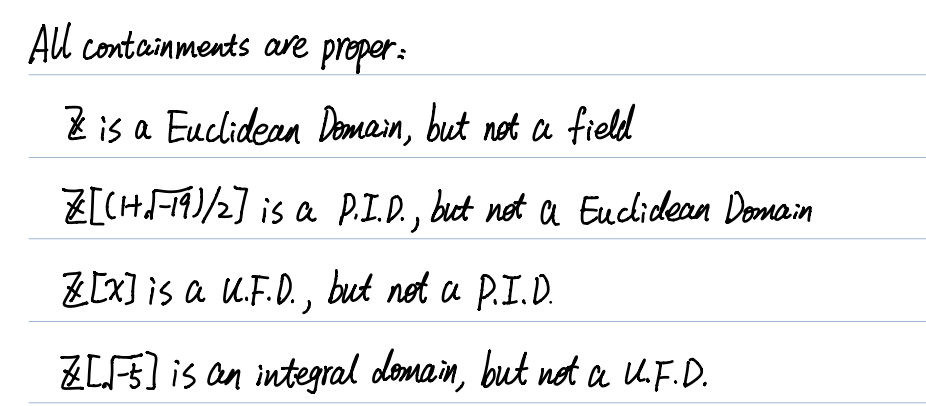 All containments are proper:
ℤ is a Euclidean Domain, but not a field
ℤ[(1+√-19)/2] is a P.I.D., but not a Euclidean Domain
ℤ[x] is a U.F.D., but not a P.I.D.
ℤ[√-5] is an integral domain, but not a U.F.D.